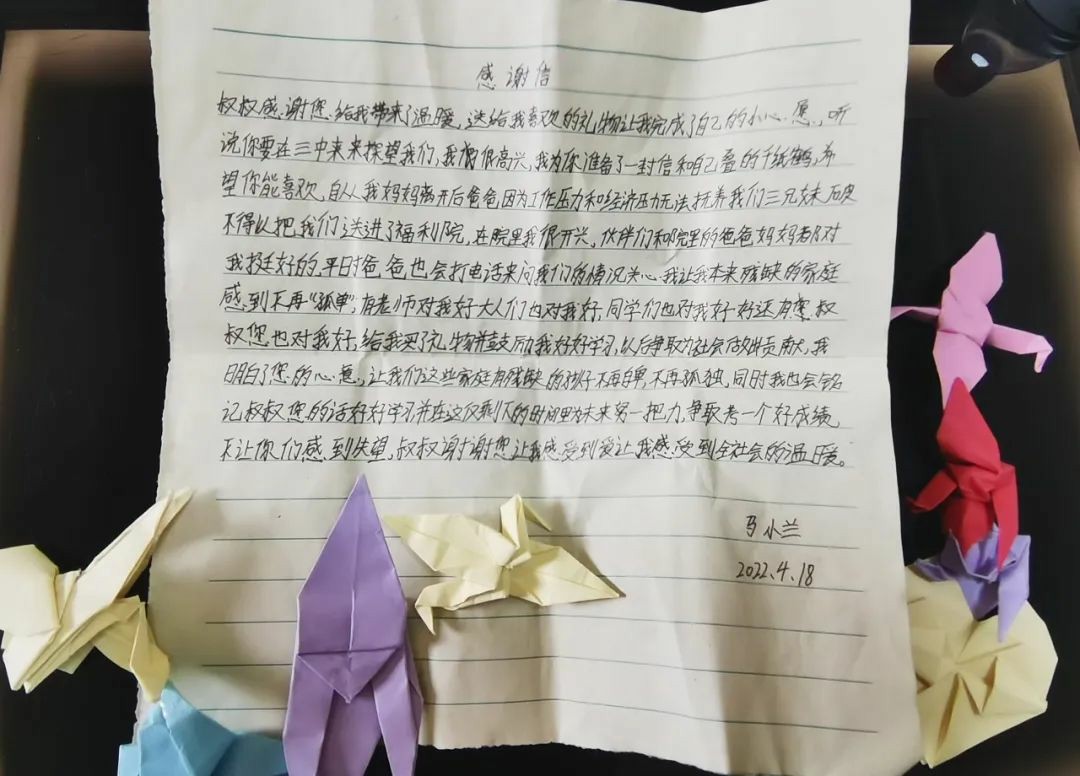 感谢信
叔叔感谢您给我带来了温暖,送给我喜欢的礼物让我完成了自己的小心愿,听
说你要在三中来来探望我们,我很高兴,我为你准备了一封信和自己叠的千纸鹤,希
望你能喜欢,自从我妈妈离开后爸爸因为工作压力和经济压力无法抚养我们三兄妹
不得以把我们送进了福利院,在院里我很开兴,伙伴们和院里的爸爸妈妈都对
我挺好的,平时爸爸也会打电话来问我们的情况关心我让我本来残缺的家庭
感到不再"孤单",有老师对我好大人们也对我好,同学们也对我好好还有您叔
叔您也对我好,给我买了礼物并鼓励我好好学习,以后争取为社会做出贡献,我
明白了您的心意,让我们这些家庭有残缺的孩子不再自卑,不再孤独,同时我也会铭
记叔叔您的话好好学习并在这仅剩下的时间里为未来努一把力,争取考一个好成绩,
不让你们感到失望,叔叔谢谢您让我感受到爱让我感受到全社会的温暖。
马小兰
2022.4.18